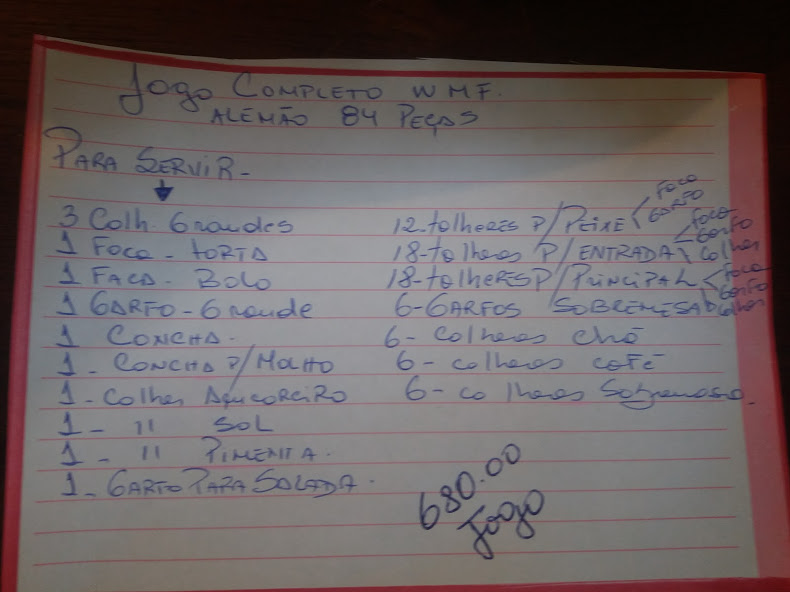 Jogo COMPLETO WMF.
ALEMÃO 84 PEÇAS
PARA SERVIR-
3 Colh. Grandes
1 FACA - TORTA
1 FACA - BOLO
1 GARFO - Grande
1 CONCHA.
1 - CONCHA P/ MOLHO
1 - Colher Açucareiro
1 - " SAL
1 - " PIMENTA.
1 - GARFO PARA SALADA.
12-talheres P/ PEIXE < FACA GARFO
18-talheres P/ ENTRADA < FACA Garfo Colher
18-talheres P/ Principal < FACA Garfo Colher
6-GARFOS SOBREMESA
6- colheres chá
6 - colheres café
6-colheres Sobremesa.
680.00
Jogo